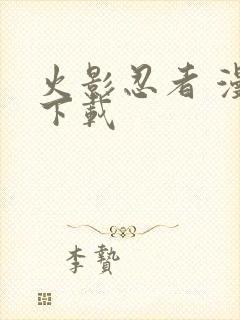 火影忍者 漫
下載
李贄